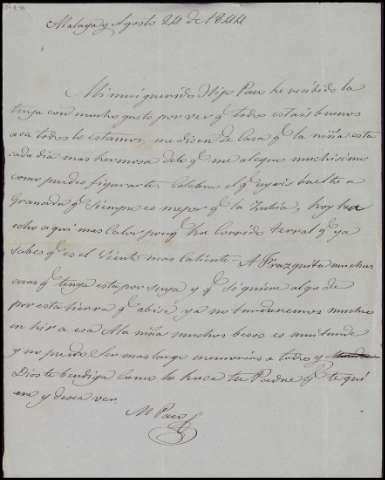 Malaga y Agosto 24 de 1844
Mi mui querido Hijo Paco he recibido la
tuya con mucho gusto por ver q.e todos estais buenos
aca todos lo estamos, me dicen de Casa q.e la niña esta
cada dia mas hermosa de lo q.e me alegro muchisimo
como puedes figurarte. Celebro el q.e vayais buelto a
Granada q.e Siempre es mejor q.e la Zubia, hoy ha
echo aqui mas Calor porq.e ha Corrido terral q.e ya
sabes q.e es el Viento mas Caliente. A Frazquita muchas
cosas q.e tenga esta por suya y q.e si quiere algo de
por esta tierra q.e abise, ya no tardaremos mucho
en hir a esa Ala niña muchos besos es mui tarde
y no puedo Ser mas largo memorias a todos y
Dios te bendiga Como lo hace tu Padre q.e te qui
ere y desea ver
M Paez